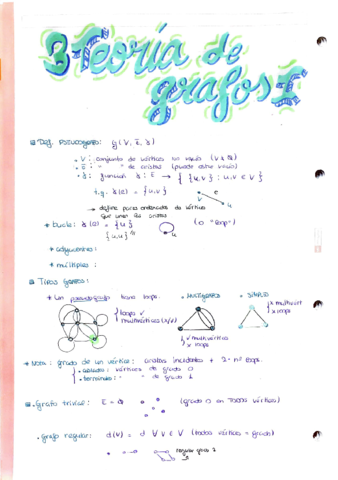 3 Teoría de
grafos I
Def. pseudografo: G(V, E, γ)
• V: conjunto de vértices no vacío (V ≠ Ø)
• E: " " de aristas (puede estar vacío)
• γ: función γ: E → { {u,v} : u,v ∈ V }
t.q. γ(e) = {u,v}
e
v
u
→ define pares ordenados de vértices
que unen las aristas
• bucle: γ(e) = {u}
(o "loop")
{u,u}
u
* adyacentes:
* múltiples:
Tipos grafos:
* Un pseudografo tiene loops.
• Multigrafo
• Simple
loops ✓
multivértices
x multivért
x loops
✓ multivértices
x loops
* Nota: grado de un vértice: aristas incidentes + 2·nº loops.
• aislados: vértices de grado 0
• terminales: " de grado 1
• Grafo trivial: E = Ø
(grado 0 en todos vértices)
• Grafo regular: d(v) = d ∀ v ∈ V (todos vértices = grado)
regular grado 2